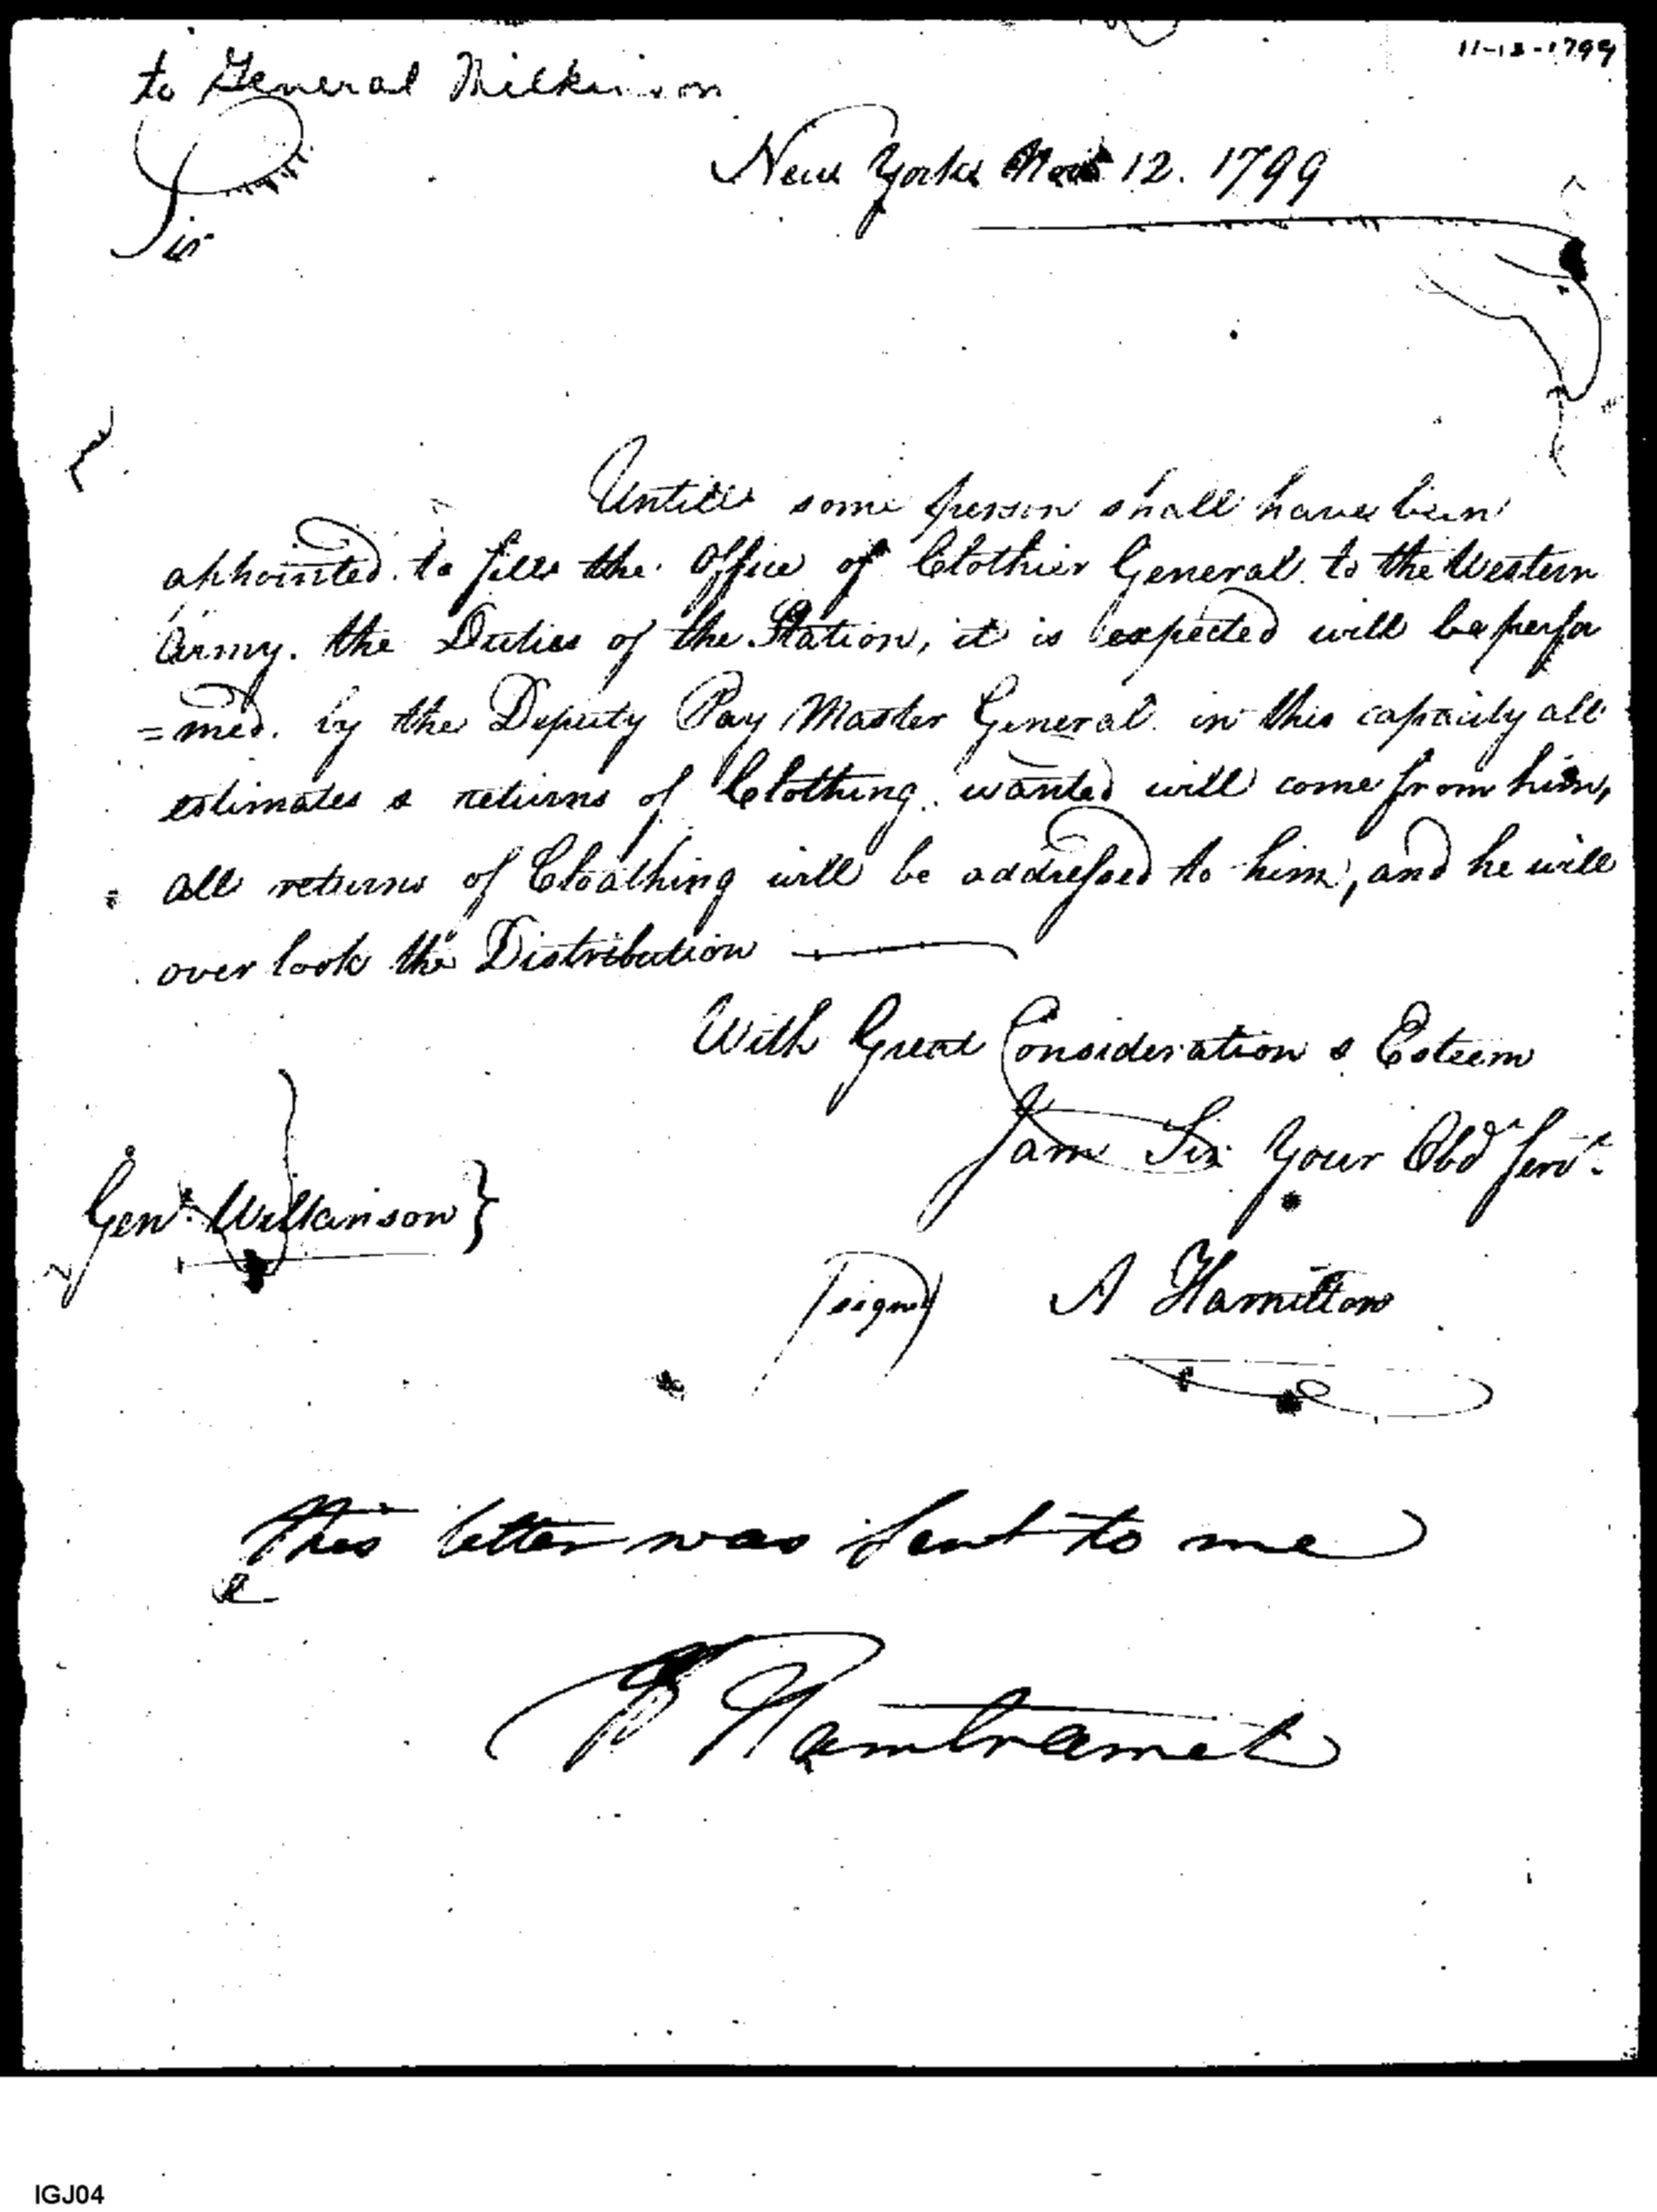 11-12-1799
to General Wilkinson
New York Nov 12. 1799
Sir
Untill some person shall have been
appointed to fill the Office of Clothier General to the Western
Army. the Duties of the Station, it is expected will be perfor
=med. by the Deputy Pay Master General in this capacity all
estimates & returns of Clothing wanted will come from him,
all returns of Cloathing will be addressed to him, and he will
over look the Distribution
With Great Consideration & Esteem
I am Sir Your Obd Servt.
Genl. Wilkinson }
(signd) A Hamilton
This letter was sent to me
Hamtramck
IGJ04